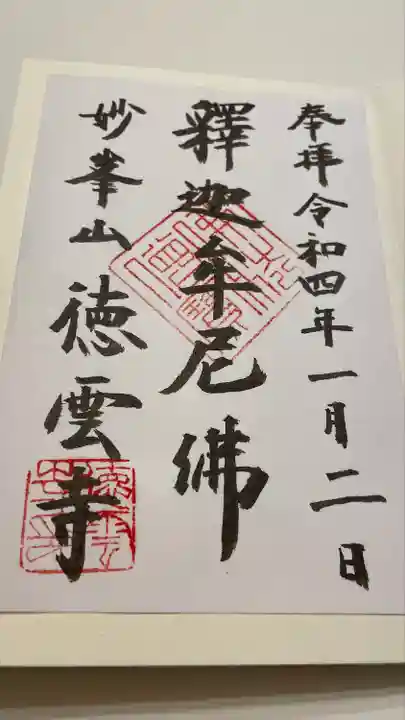 奉拜令和四年一月二日
釋迦牟尼佛
妙峯山徳雲寺